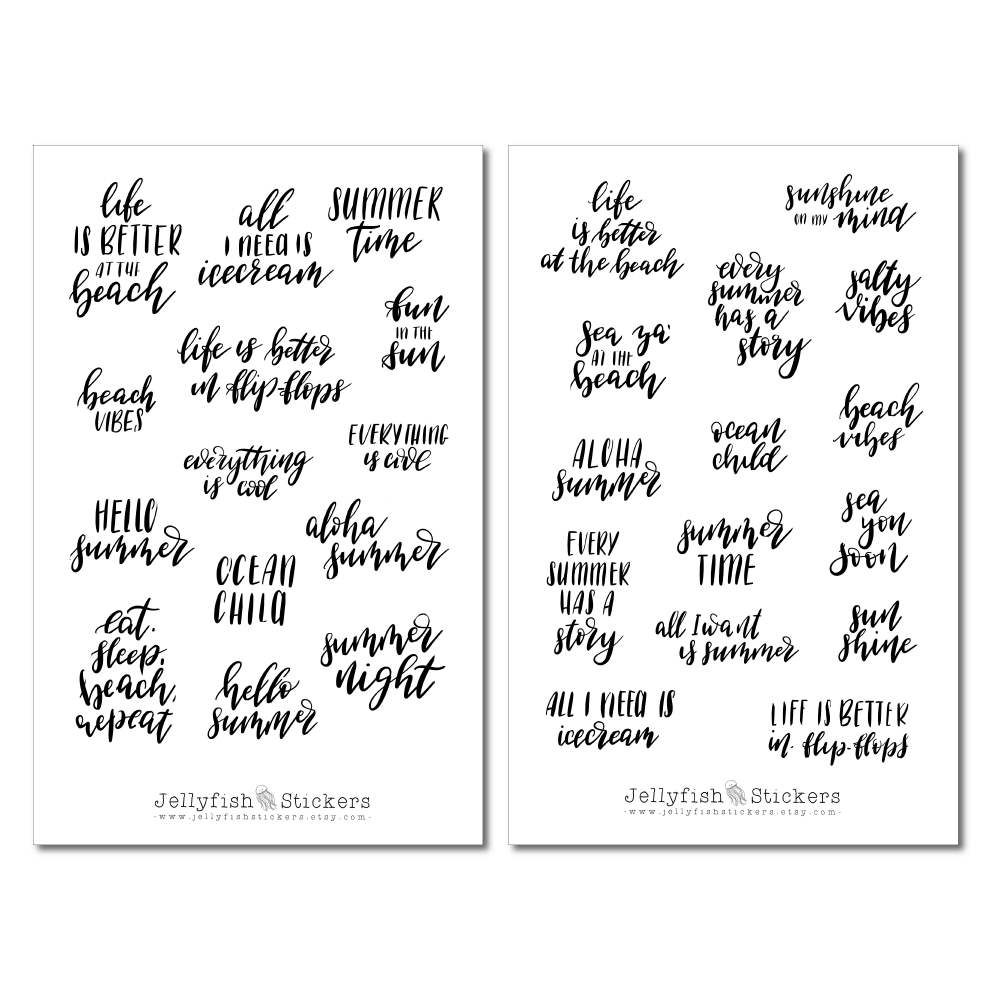 life
IS BETTER
AT THE
beach
all
I NEED IS
icecream
SUMMER
time
fun
IN THE
sun
life is better
in flip-flops
beach
VIBES
everything
is cool
EVERYTHING
is cool
HELLO
summer
OCEAN
CHILD
aloha
summer
eat.
sleep.
beach.
repeat
hello
summer
summer
night
Jellyfish Stickers
-www.jellyfishstickers.etsy.com-
life
is better
at the beach
sunshine
on my mind
every
summer
has a
story
salty
vibes
sea ya'
AT THE
beach
ocean
child
beach
vibes
ALOHA
summer
sea
you
soon
EVERY
SUMMER
HAS A
story
summer
TIME
all I want
is summer
sun
shine
ALL I NEED IS
icecream
LIFE IS BETTER
in flip-flops
Jellyfish Stickers
-www.jellyfishstickers.etsy.com-